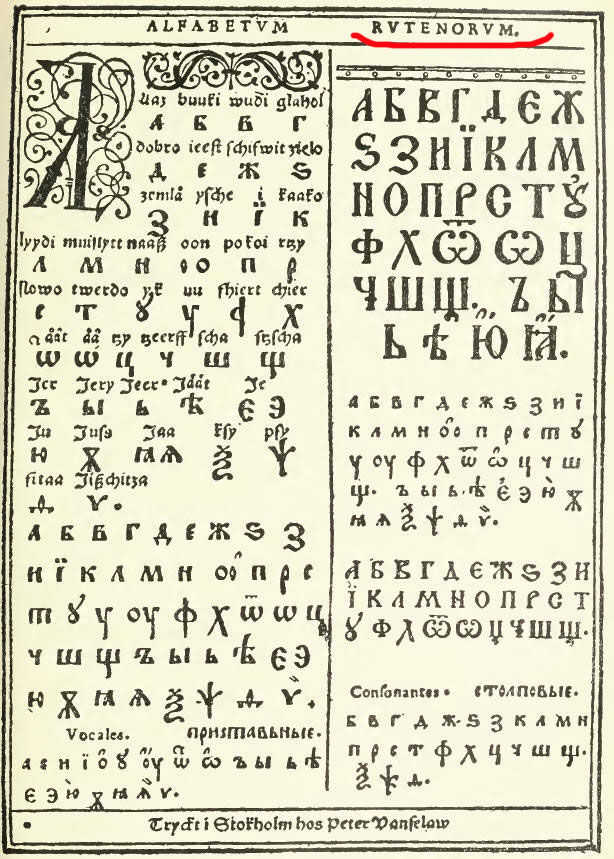 ALFABETVM RVTENORVM.
Aaz buuki wudi glahol
А Б В Г
dobro ieest schifwit zielo
Д Е Ж Ѕ
zemlå ysche i kaako
З И Ї К
lyydi muisslyte naaß oon pokoi rtzy
Л М Н О П Р
slowo twerdo yk uu fhiert chier
С Т Ꙋ Ѵ Ф Х
ååt åå tzy tzeerff scha stzscha
Ѡ Ѡ Ц Ч Ш Щ
Jer Jery Jeer Jäät Je
Ъ Ы Ь Ѣ Є Э
Ju Juss Jaa ksy psy
Ю Ѫ Ꙗ Ѧ Ѯ Ѱ
fitaa Jißchitza
Ѳ Ѵ.
А Б В Г Д Е Ж Ѕ З
И Ї К Л М Н О П Р С
Т Ꙋ Ѵ ОУ Ф Х Ѿ Ѡ Ц
Ч Ш Щ Ъ Ы Ь Ѣ Є Э
Ю Ѫ Ꙗ Ѧ Ѯ Ѱ Ѳ Ѵ.
Vocales. ПРИЗТАВЬНЫЕ.
А Е И Ї О Ꙋ ОУ Ѿ Ѡ Ъ Ы Ь Ѣ
Є Э Ю Ѫ Ꙗ Ѧ Ѵ.
А Б В Г Д Є Ж
Ѕ З И Ї К Л М
Н О П Р С Т Ꙋ
Ф Х Ѿ Ѡ Ц
Ч Ш Щ. Ъ Ы
Ь Ѣ Ю Ꙗ.
А Б В Г Д Е Ж Ѕ З И Ї
К Л М Н О П Р С Т Ꙋ
Ѵ ОУ Ф Х Ѿ Ѡ Ц Ч Ш
Щ. Ъ Ы Ь. Ѣ Є Э Ю Ѫ
Ꙗ Ѧ Ѯ Ѱ Ѳ Ѵ.
А Б В Г Д Є Ж Ѕ З И
Ї К Л М Н О П Р С Т
Ꙋ Ф Х Ѿ Ѡ Ц Ч Ш Щ.
Consonantes. СТОЛПОВЫЕ.
Б В Г Д Ж. Ѕ З К Л М Н
П Р С Т Ф Х Ц Ч Ш Щ.
Ѯ Ѱ Ѳ.
Tryckt i Stokholm hos Peter Vanselaw